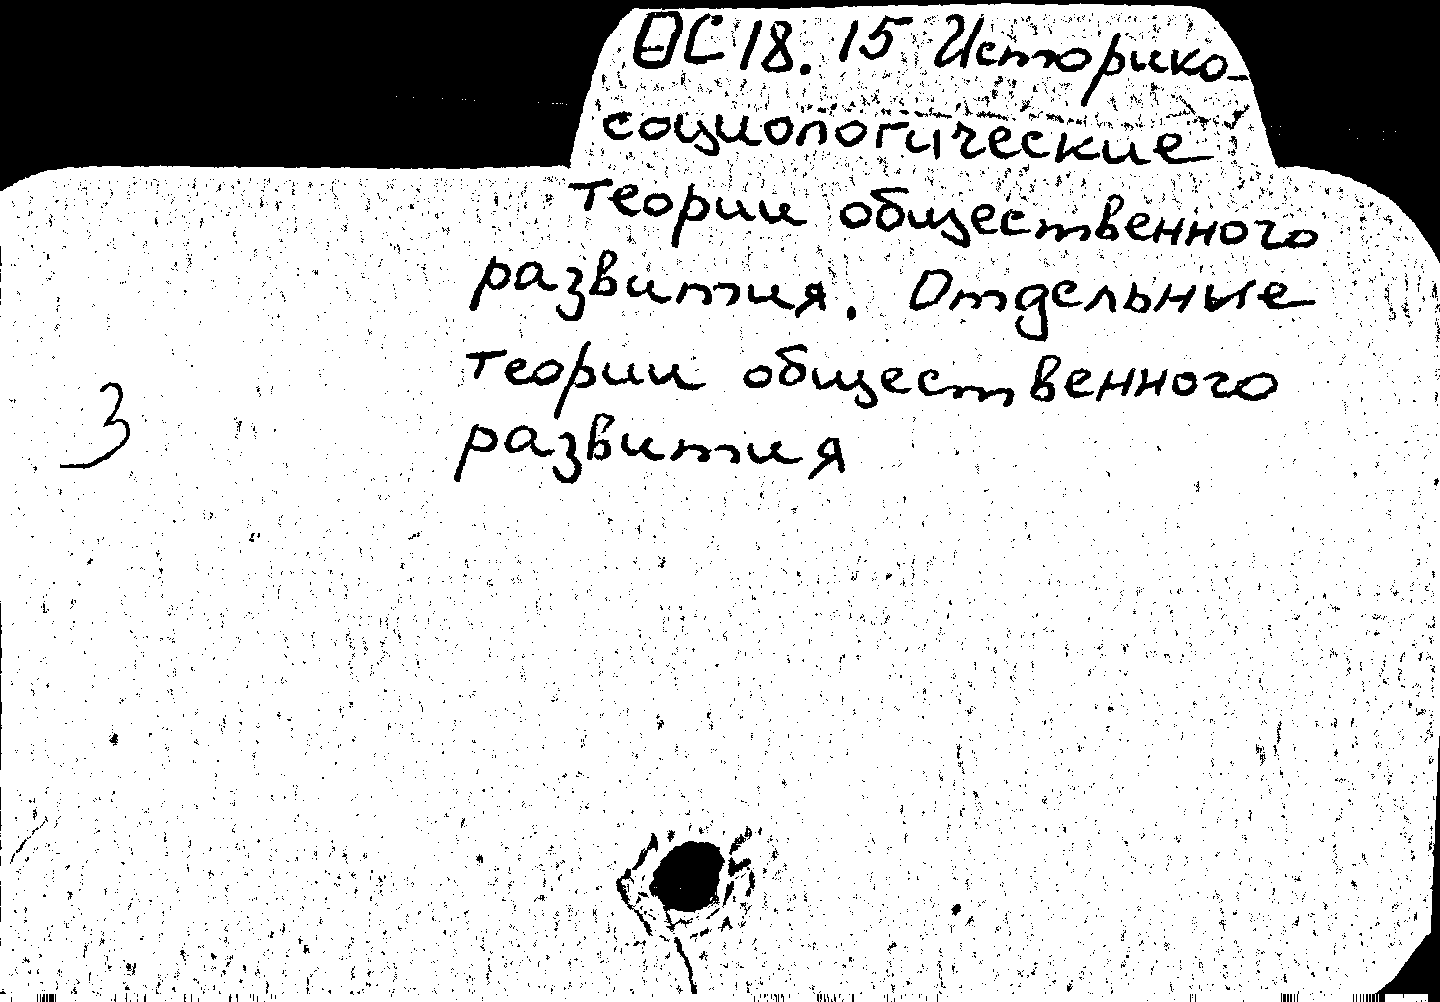 ӨС 18.15 Историко-
социологические
теории общественного
развития. Отдельные
теории общественного
развития
3